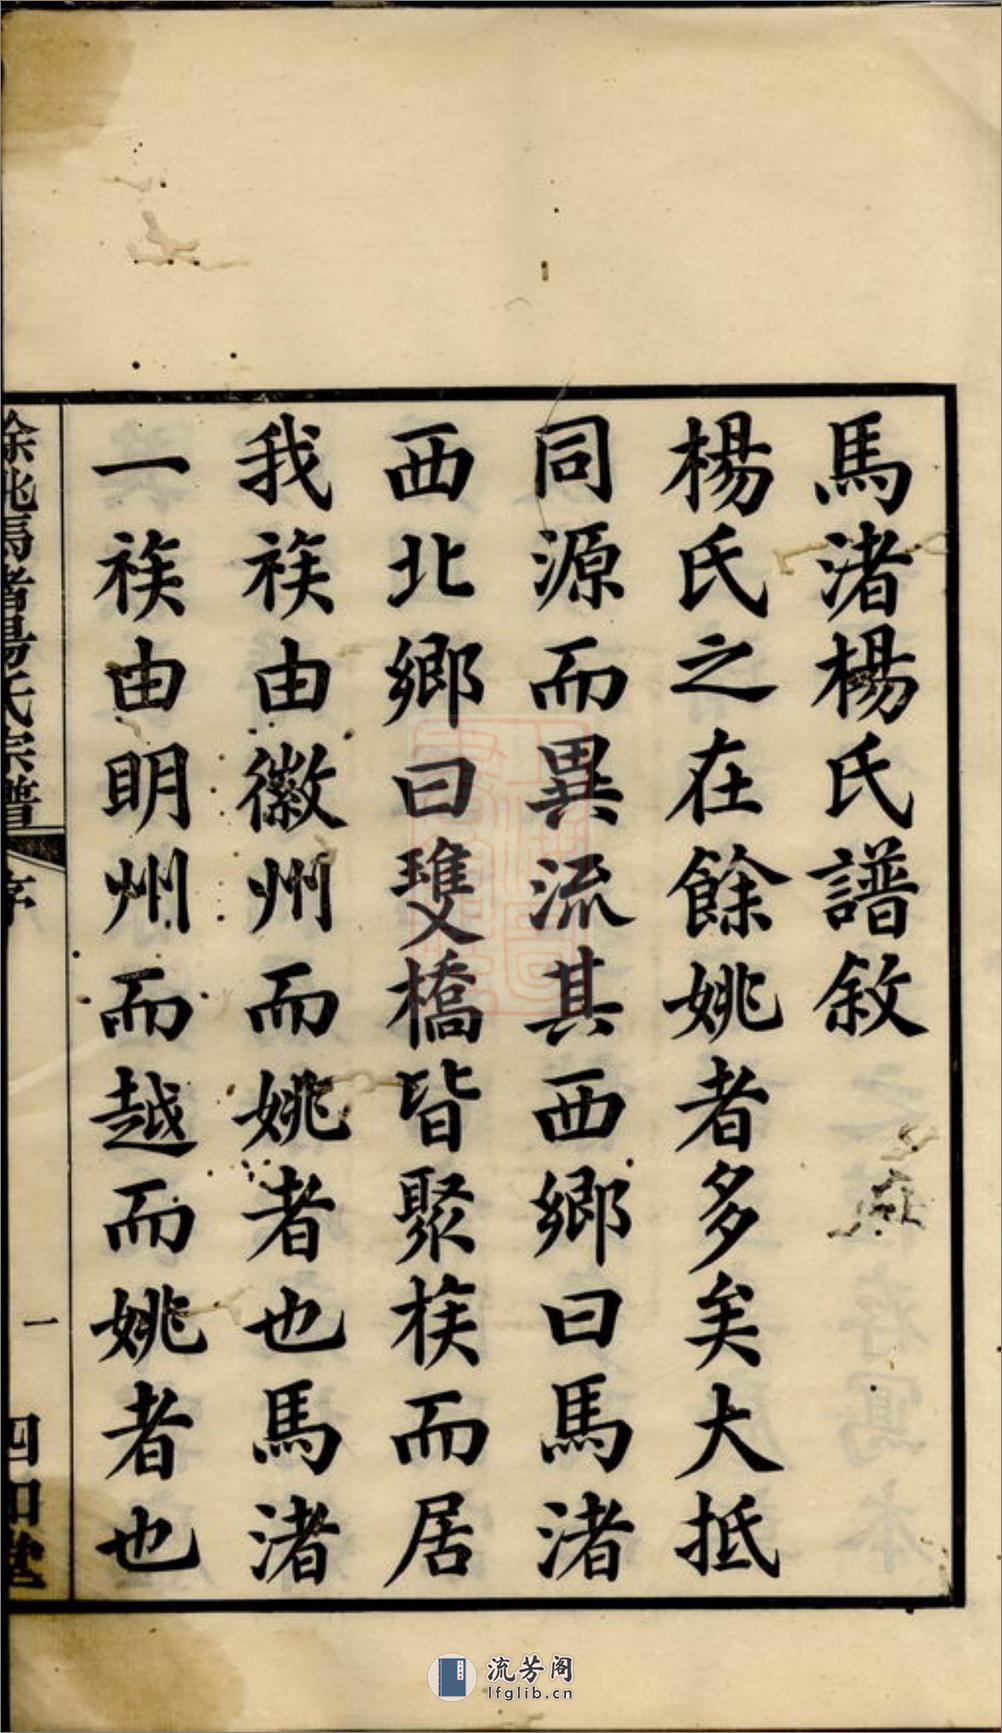 馬渚楊氏譜敘
楊氏之在餘姚者多矣大抵
同源而異流其西鄉曰馬渚
西北鄉曰雙橋皆聚族而居
我族由徽州而姚者也馬渚
一族由明州而越而姚者也
餘姚馬渚楊氏宗譜
序
一
四知堂
流芳阁
lfglib.cn